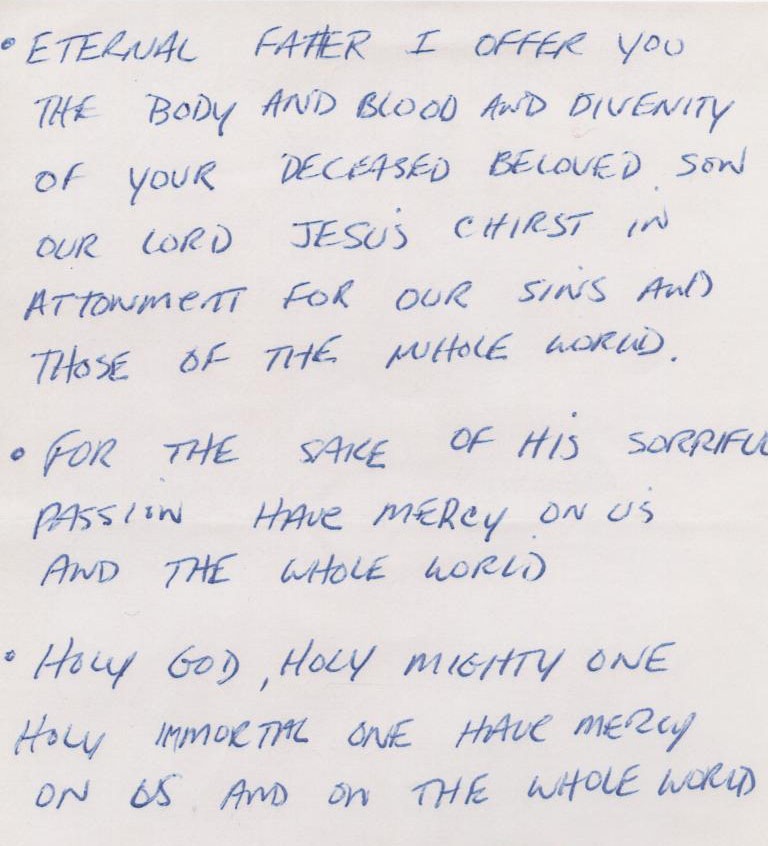 • ETERNAL FATHER I OFFER YOU
THE BODY AND BLOOD AND DIVENITY
OF YOUR DECEASED BELOVED SON
OUR LORD JESUS CHIRST IN
ATTONMENT FOR OUR SINS AND
THOSE OF THE WHOLE WORLD.
• FOR THE SAKE OF HIS SORRIFUL
PASSION HAVE MERCY ON US
AND THE WHOLE WORLD
• HOLY GOD, HOLY MIGHTY ONE
HOLY IMMORTAL ONE HAVE MERCY
ON US AND ON THE WHOLE WORLD